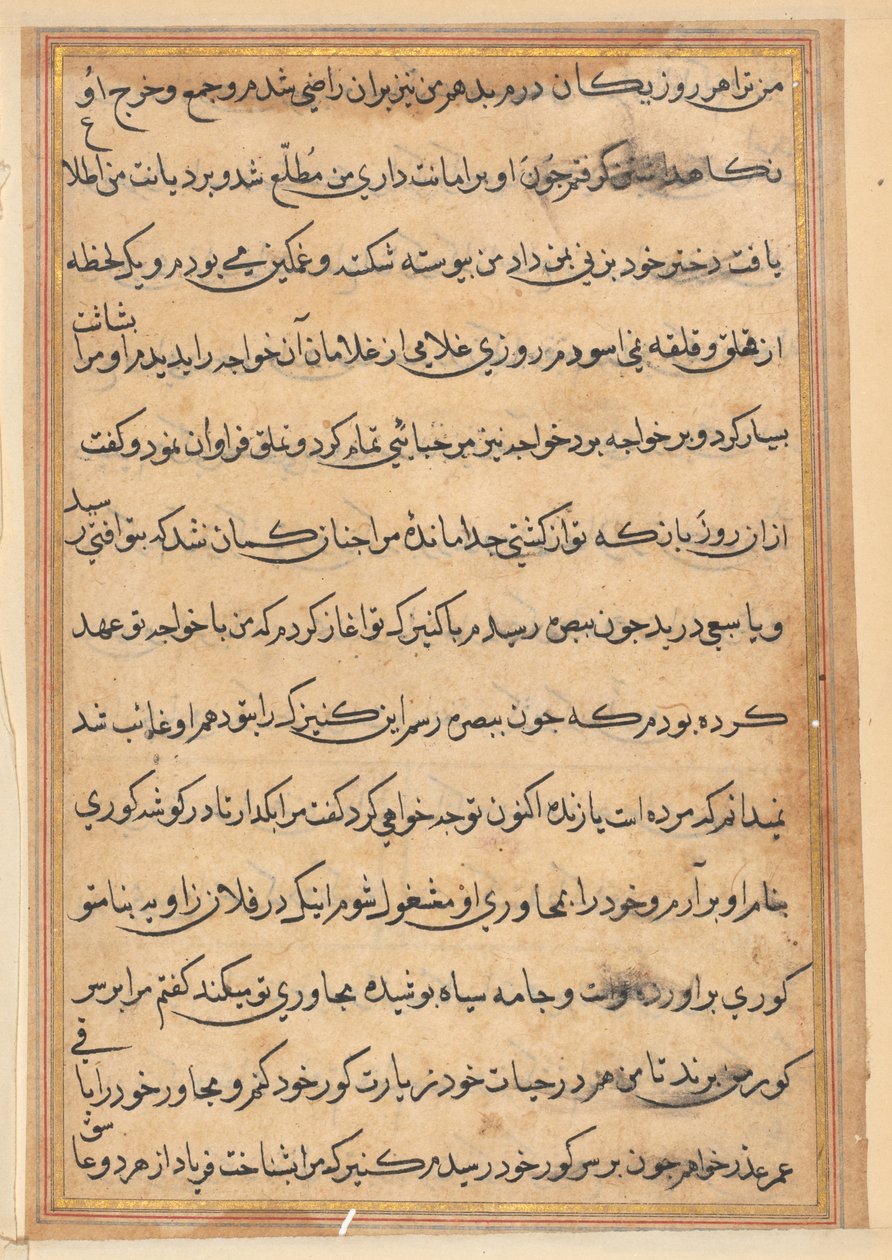 من ترا هر روز یکان درم بدهم من نیز بران راضی شدم و جمع و خرج اوُ
نکاهداشتن کرفتم جُونَ او بر امانت داری من مُطلّع شد و بر دیانت من اطلاع
یافت دختر خود بزنی بمن داد من بیوسته شکسته و غمکین می بودم و یک لحظه
از قلق و قلقه نمی اسودم روزی غلامی از غلامان آن خواجه را بدیدم او مرا بشاشت
بسیار کرد و بر خواجه برد خواجه نیز مرحبائیی تمام کرد و تملق فراوان نمود و کفت
ازان روزَ بازکه تو از کشتی جدا ماندهٔ مرا جنان کسان نشد که بتو افتی رسید
و یا سبعی درید جون ببصره رسیدم با کنیزک تو اغاز کردم که من با خواجه تو عهد
کرده بودم که جون ببصره رسم این کنیزک را بتو دهم او غائب شد
نمیدانم که مرده است یا زنده اکنون تو جه خواهی کرد کفت مرا بکدار تا در کوشه کوری
بنام او بر آرم و خود را بمجاوری او مشغول شوم اینک در فلان زاویه بنام تو
کوری براورده است و جامه سیاه بوشیده مجاوری تو میکند کفتم مرا بر سر
کور من برند تا من هم در حیات خود زیارت کور خود کنم و مجاور خود را باقی
عمر عذر خواهم جون بر سر کور خود رسیدم کنیزک مرا بشناخت فریاد از هر دو عاشق